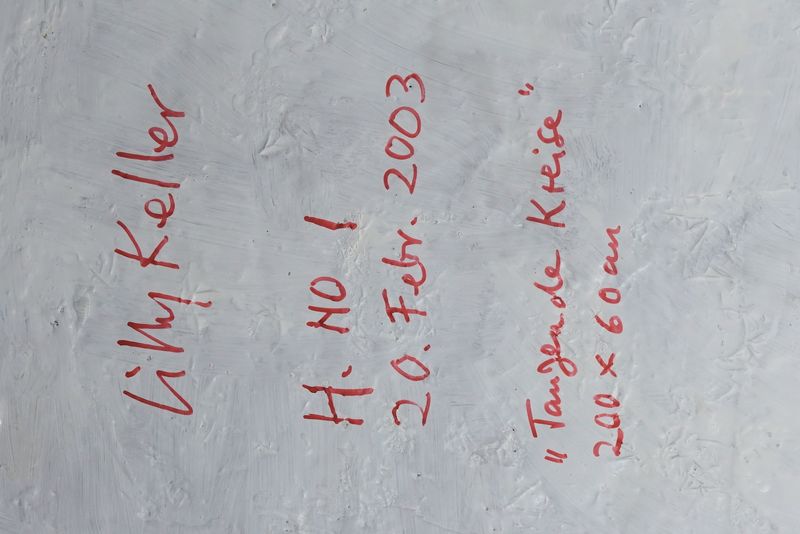 Lilly Keller
H. NO 1
20. Febr. 2003
"Tanzende Kreise"
200 x 60 cm